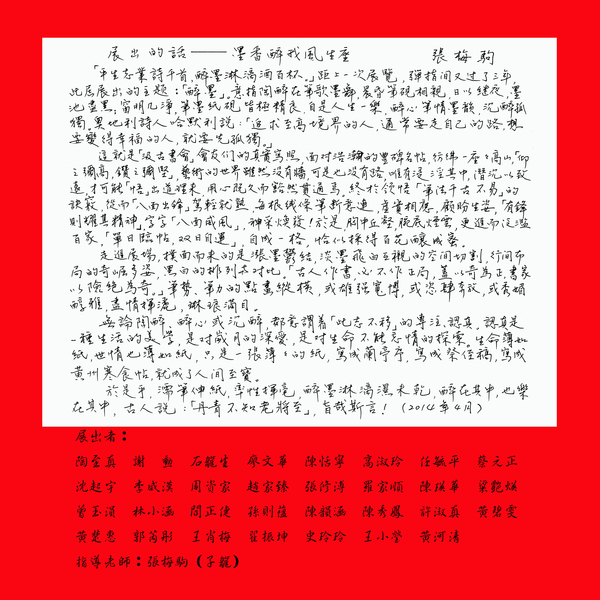 展出的話——墨香醉我風生座 張梅駒
「平生志業詩千首,醉墨淋漓酒百杯。」距上一次展覽,彈指間又過了三年,
此屆展出的主題:「醉墨」。意指陶醉在筆歌墨鄉,晨昏筆硯相親,日以繼夜,墨
池盡黑;窗明几淨,筆墨紙硯皆極精良,自是人生一樂,醉心筆情墨韻,沉醉孤
獨。奧地利詩人哈默利說:「追求至高境界的人,通常要走自己的路,想
要變得幸福的人,就要先孤獨。」
這就是汲古書會,會友們的真實寫照,面對浩瀚的墨碑名帖,彷彿一座座高山,仰
之彌高,鑽之彌堅,藝術的世界雖然沒有牆,可是也沒有路,唯有浸淫其中,潛沉以致
遠,才可能「悟」出道理來,用心既久而豁然貫通焉,終於領悟「筆法千古不易」的
訣竅,從而「八面出鋒」駕輕就熟,每根線條筆斷意連,虛實相應,顧盼生姿,「有鋒
則耀其精神」,字字「八面威風」,神采煥發!於是胸中丘壑,腕底煙雲,更進而泛濫
百家,「單日臨帖,双日自運」,自成一格,恰似採得百花釀成蜜。
走進展場,撲面而來的是濃墨鬱結,淡墨飛白互襯的空間切割,行間布
局的奇崛多姿,黑白的排列在對比。「古人作書,必不作正局,蓋以奇為正」書家
以險絕為奇。筆勢、筆力的點畫縱橫,或雄強寬博,或恣肆奔放,或秀媚
醇雅,盡情揮灑,琳琅滿目。
無論陶醉、醉心或沉醉,都意謂着「此志不移」的專注、認真,認真是
一種生活的美學,是對歲月的深愛,是對生命不能忘情的探索。生命薄如
紙,世情也薄如紙,只是一張薄薄的紙,寫成蘭亭序,寫成祭侄稿,寫成
黃州寒食帖,就成了人間至寶。
於是乎,濡筆伸紙,率性揮毫,醉墨淋漓濕未乾,醉在其中,也樂
在其中,古人說:「丹青不知老將至」,旨哉斯言! (2014年4月)
展出者:
陶壹真 謝 勳 石龍生 廖文華 陳恬寧 高淑玲 任毓平 蔡元正
沈起宇 李威漢 周肯家 趙家臻 張修溥 羅家順 陳瑛華 梁艷媒
曾玉潢 林小涵 簡正健 孫則蘊 陳韻涵 陳秀鳳 許淑真 黃碧雯
黃楚惠 郭芮彤 王肖梅 翟振坤 史玲玲 王小瑩 黃河清
指導老師:張梅駒(子龍)